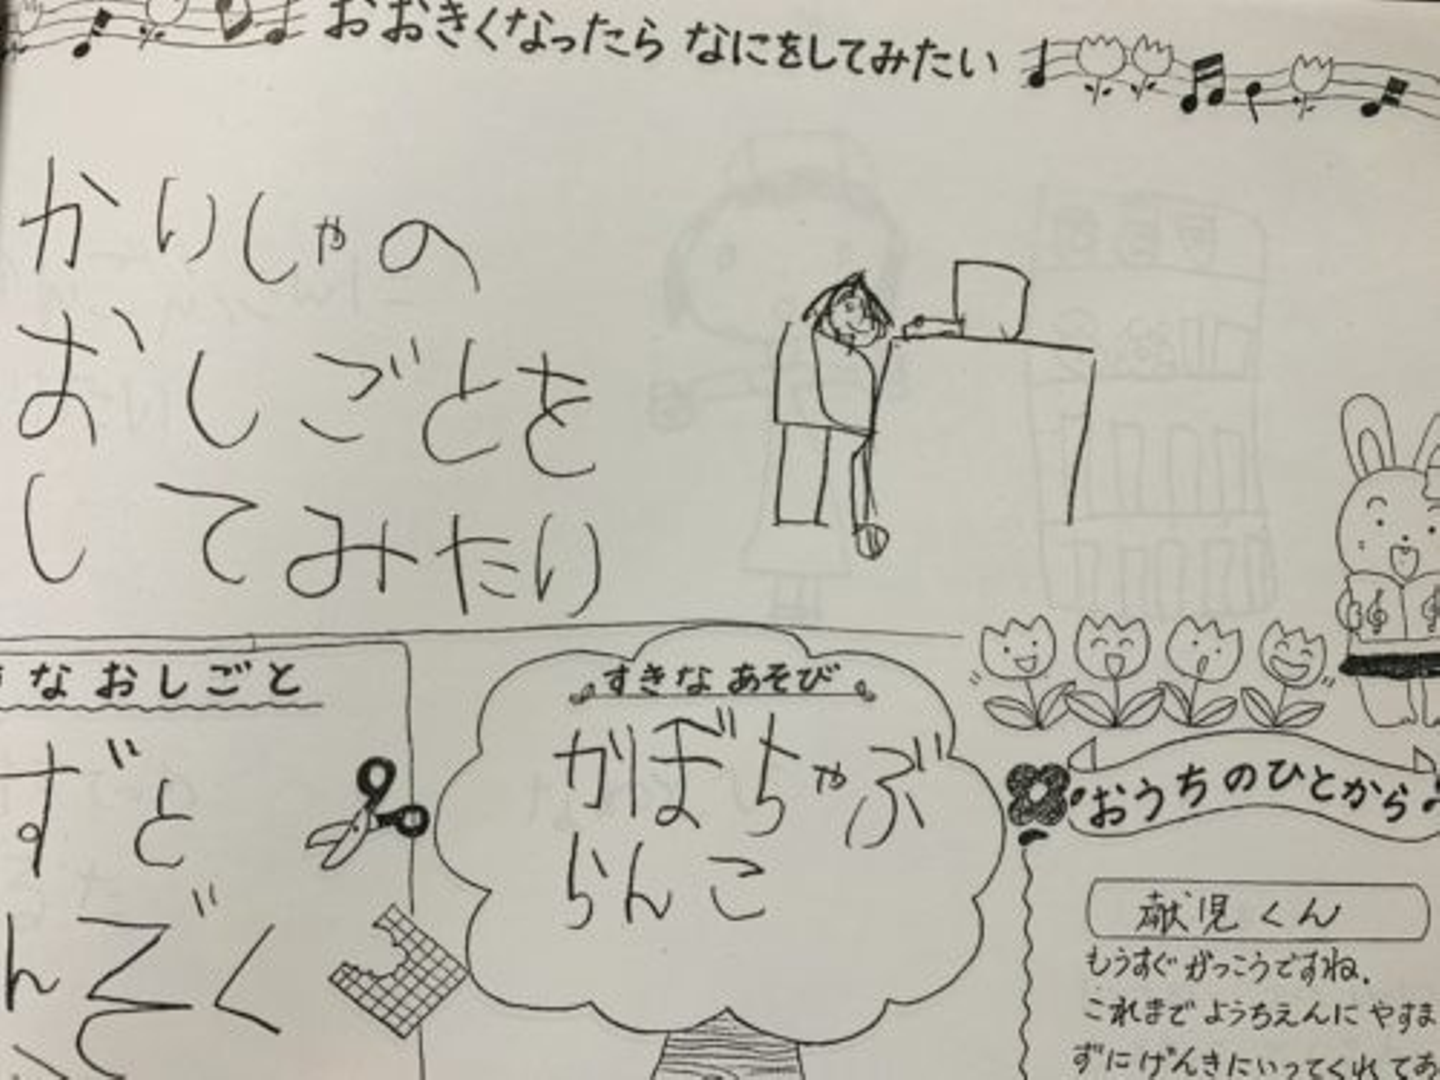 おおきくなったら なにをしてみたい
かいしゃの
おしごとを
してみたい
なおしごと
ずと
んぞく
すきな あそび
かぼちゃぶ
らんこ
おうちのひとから
献児くん
もうすぐ がっこうですね.
これまで ようちえんに やすま
ずに げんきに いってくれて あ